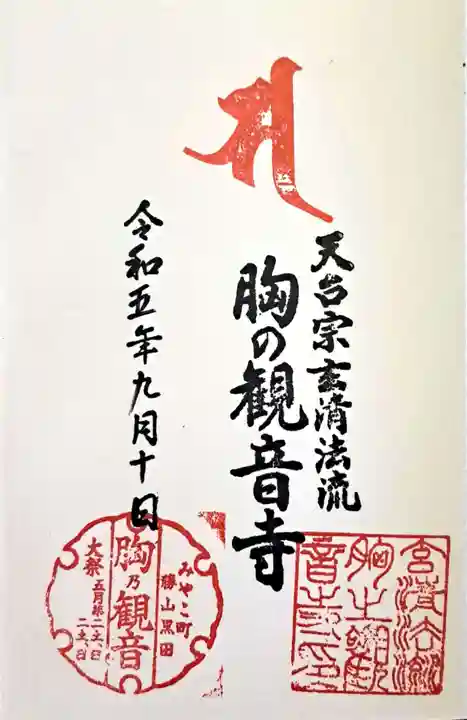 天台宗玄清法流
胸の観音寺
令和五年九月十日
みやこ町
勝山黒田
胸乃観音
大祭
玄清法流
胸之観
音寺之印